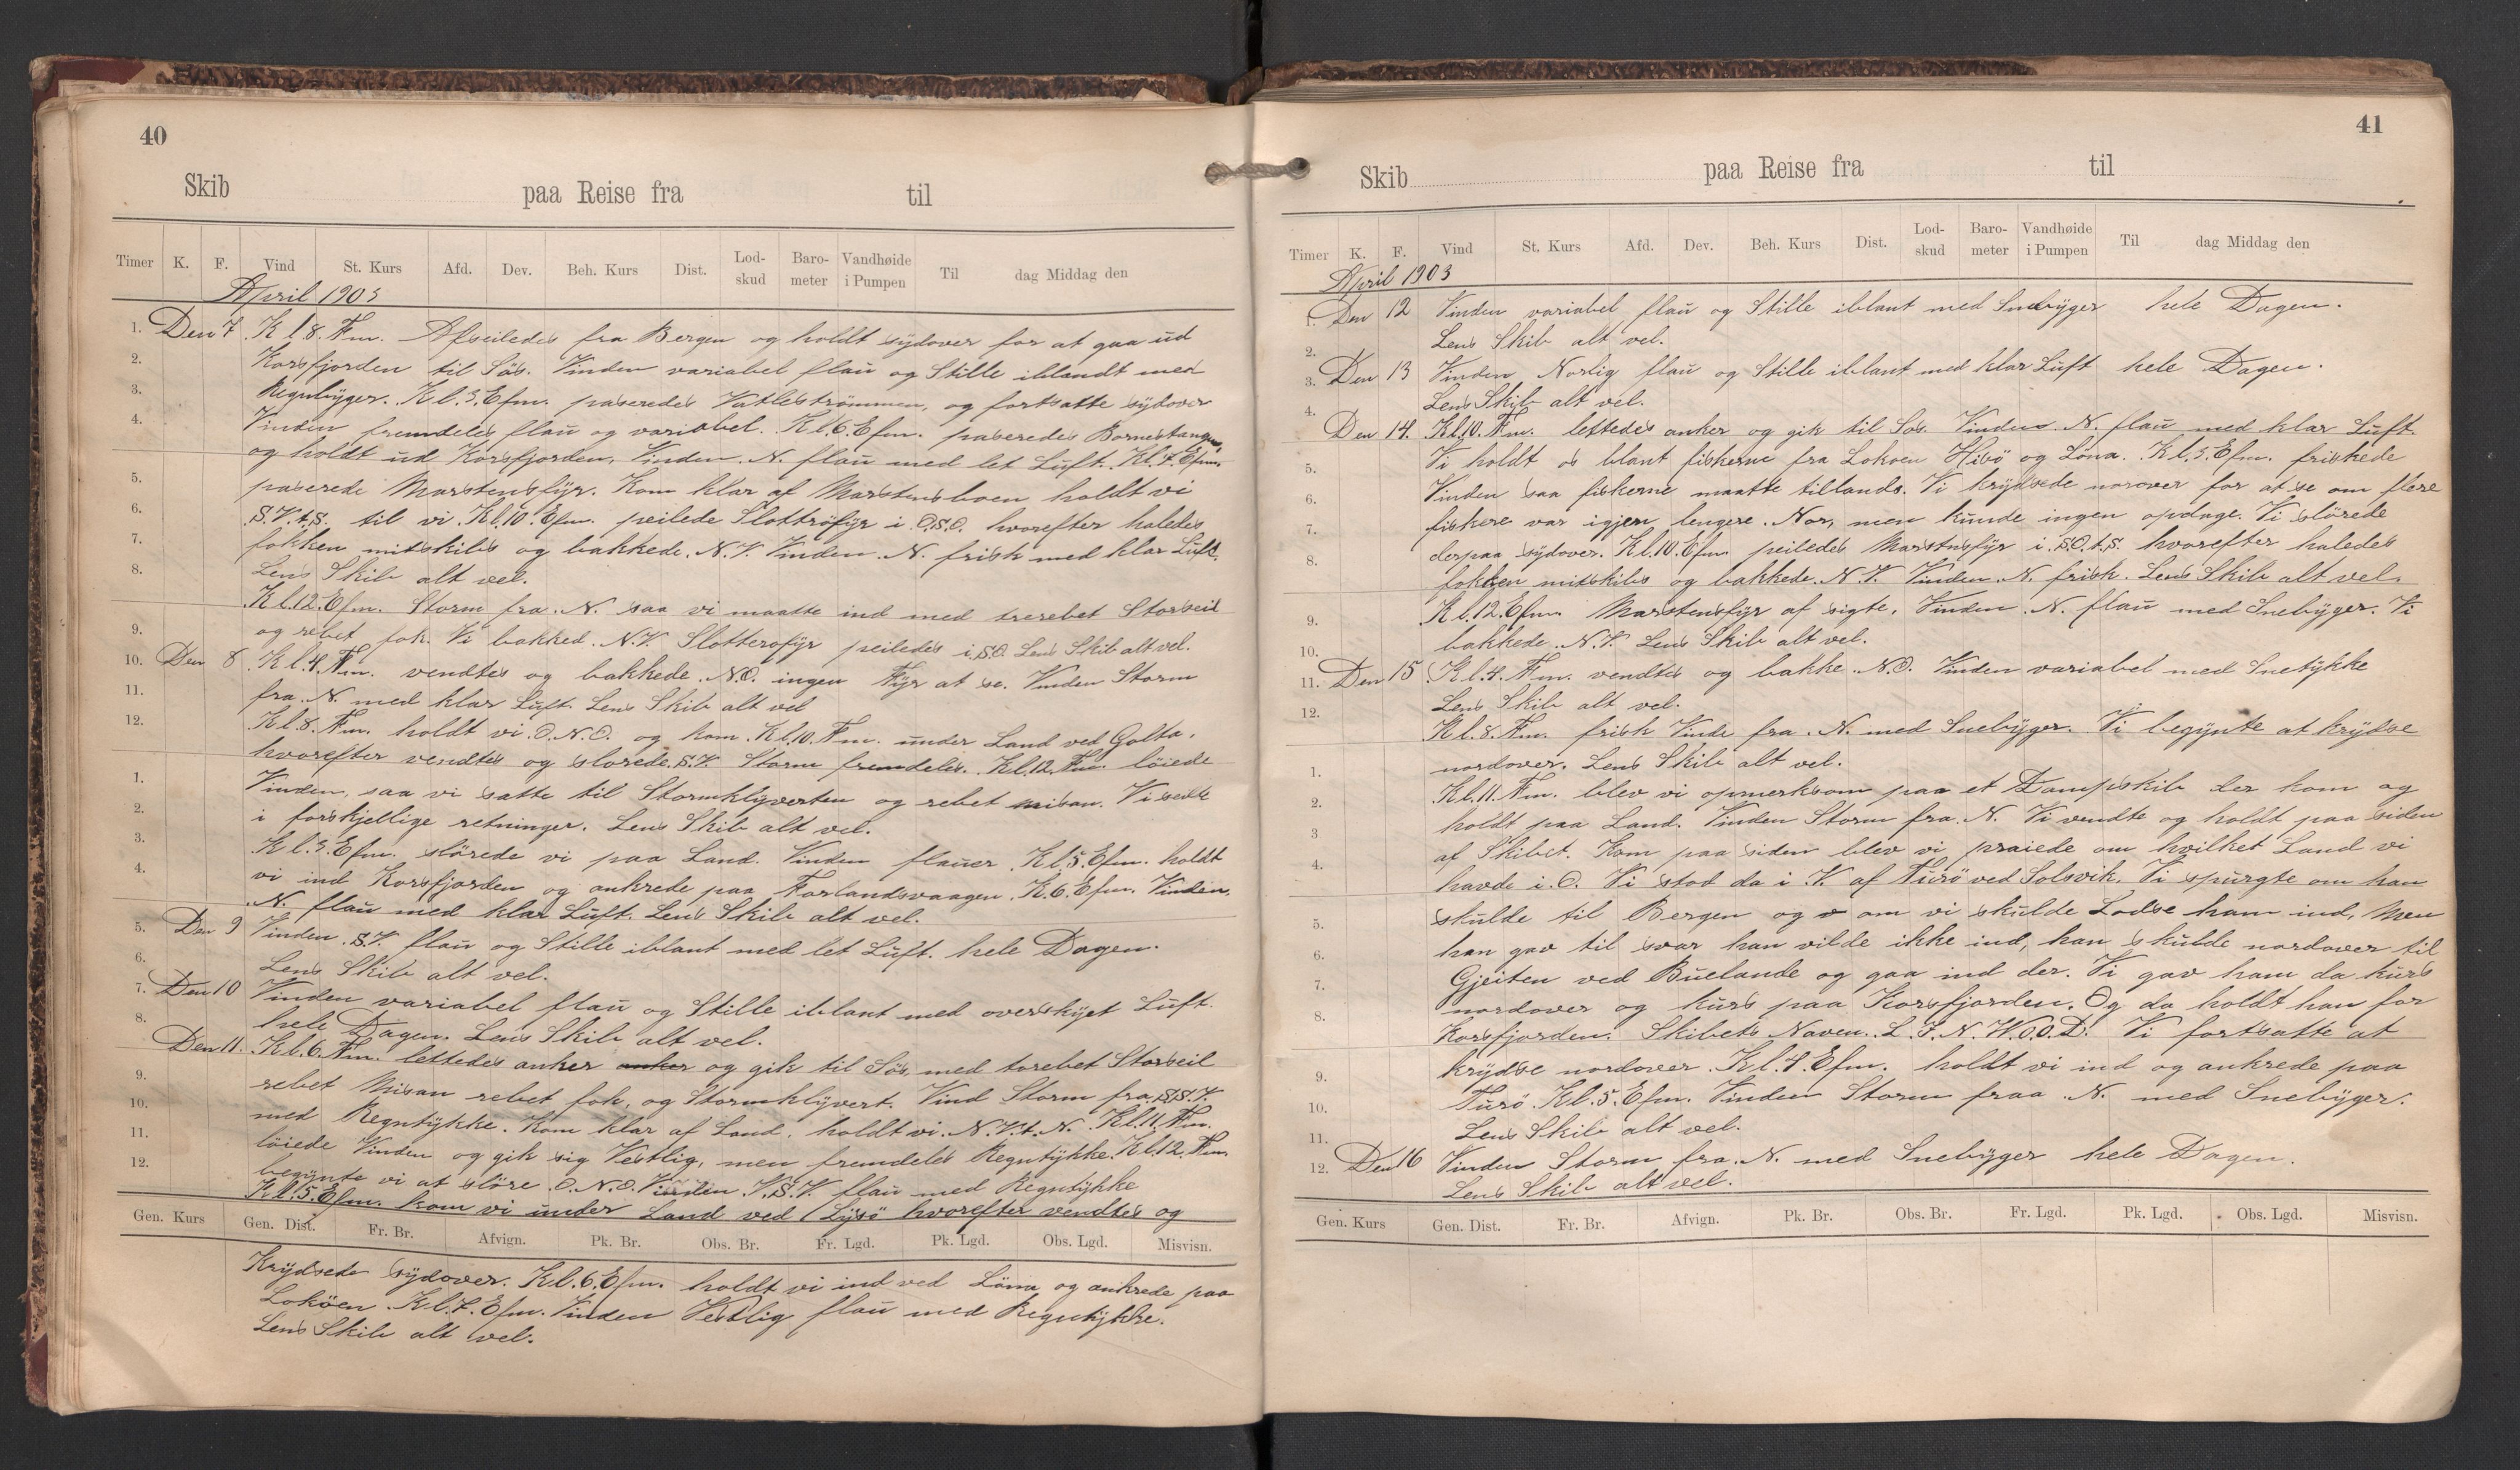 40
Skib paa Reise fra til
Timer K. F. Vind St. Kurs Afd. Dev. Beh. Kurs Dist. Lod-skud Baro-meter Vandhøide i Pumpen Til dag Middag den
April 1903
1. Den 7 Kl 8. Fm. Afseiledes fra Bergen og holdt sydover for at gaa ud
2. Korsfjorden til Søs. Vinden variabel flau og Stille iblandt med
3. Regnbyger. Kl. 3. Efm. paseredes Vatlestrømmen, og fortsatte sydover
4. Vinden fremdeles flau og variabel. Kl. 6. Efm. paseredes Bornestangen
og holdt ud Korsfjorden, Vinden. N. flau med let Luft. Kl. 7. Efm.
5. paserede Marstensfyr. Kom klar af Marstensboen holdt vi
6. S.V.t.S. til vi Kl. 10. Efm. peilede Slottröfyr i O.S.O. hvorefter haledes
7. fokken mitskibs og bakkede. N.V. Vinden. N. frisk med klar Luft.
8. Lens Skib alt vel.
Kl. 12. Efm. Storm fra. N. saa vi maatte ind med trerebet Storseil
9. og rebet fok. Vi bakked. N.V. Slotterofyr peiledes i S.O. Lens Skib alt vel.
10. Den 8 Kl. 4. Fm. vendtes og bakkede. N.O. ingen Fyr at se. Vinden Storm
11. fra. N. med klar Luft. Lens Skib alt vel
12. Kl. 8. Fm. holdt vi. O.N.O. og kom. Kl. 10. Fm. under Land ved Golta.
hvorefter vendtes og slorede. S.V. Storm fremdeles. Kl. 12. Fm. löiede
1. Vinden, saa vi satte til Stormklyverten og rebet misan. Vi seilte
2. i forskjellige retninger. Lens Skib alt vel.
3. Kl. 3. Efm. slörede vi paa Land. Vinden flauer. Kl. 5. Efm. holdt
4. vi ind Korsfjorden og ankrede paa Forlandsvaagen. K. 6. Efm. Vinden.
N. flau med klar Luft. Lens Skib alt vel.
5. Den 9 Vinden. S.V. flau og Stille iblant med let Luft. hele Dagen.
6. Lens Skib alt vel.
7. Den 10 Vinden variabel flau og Stille iblant med overskyet Luft.
8. hele Dagen. Lens Skib alt vel.
Den 11. Kl. 6. Fm. lettedes anker anker og gik til Sös, med torebet Storseil
9. rebet Misan rebet fok, og Stormklyvert. Vind Storm fra. S.S.V.
10. med Regntykke. Kom klar af Land. holdt vi. N.V.t.N. Kl. 11. Fm.
11. löiede Vinden og gik sig Vestlig, men fremdeles Regntykke. Kl. 12. Fm.
12. begynte vi at slöre. O.N.O. Vinden V.S.V. flau med Regntykke
Kl. 5. Efm. kom vi under Land ved Lysö hvorefter vendtes og
Gen. Kurs Gen. Dist. Fr. Br. Afvign. Pk. Br. Obs. Br. Fr. Lgd. Pk. Lgd. Obs. Lgd. Misvisn.
Krydsede sydover. Kl. 6. Efm. holdt vi ind ved Löna og ankrede paa
Loköen. Kl. 7. Efm. Vinden Vestlig flau med Regntykke.
Lens Skib alt vel.
41
Skib paa Reise fra til
Timer K. F. Vind St. Kurs Afd. Dev. Beh. Kurs Dist. Lod-skud Baro-meter Vandhøide i Pumpen Til dag Middag den
April 1903
1. Den 12 Vinden variabel flau og Stille iblant med Snebyger hele Dagen.
2. Lens Skib alt vel.
3. Den 13 Vinden Norlig flau og Stille iblant med klar Luft hele Dagen.
4. Lens Skib alt vel.
Den 14. Kl. 10. Fm. lettedes anker og gik til Sös. Vinden. N. flau med klar Luft.
5. Vi holdt os blant fiskerne fra Lokoen Hisö og Löna. Kl. 3. Efm. friskede
6. Vinden saa fiskerne maatte tillands. Vi krydsede norover for at se om flere
7. fiskere var igjen lengere. Nor, men kunde ingen opdage. Vi slörede
8. derpaa sydover. Kl. 10. Efm peiledes Marstnsfyr i. S.O.t.S. hvorefter haledes
fokken mitskibs og bakkede. N.V. Vinden. N. frisk. Lens Skib alt vel.
9. Kl. 12. Efm. Marstensfyr af sigte, Vinden. N. flau med Snebyger. Vi
10. bakkede. N.V. Lens Skib alt vel.
11. Den 15 Kl. 4. Fm. vendtes og bakke. N.O. Vinden variabel med Snetykke
12. Lens Skib alt vel.
Kl. 8. Fm. frisk Vinde fra. N. med Snebyger. Vi begynte at krydse
1. nordover. Lens Skib alt vel.
2. Kl. 11. Fm. blev vi opmerksom paa et Dampskib der kom og
3 holdt paa Land. Vinden Storm fra. N. Vi vendte og holdt paa siden
4. af Skibet. Kom paa siden blev vi praiede om hvilket Land vi
havde i. O. Vi stod da i. V. af Turö ved Solsvik. Vi spurgte om han
5. skulde til Bergen og om vi skulde Lodse ham ind, Men
6. han gav til svar han vilde ikke ind, han skulde nordover til
7. Gjeiten ved Buelande og gaa ind der. Vi gav ham da kurs
8. nordover og kurs paa Korsfjorden. Og da holdt han for
Korsfjorden. Skibets Naven. L.I.N.W.O.O.D. Vi fortsatte at
9. krydse nordover. Kl. 4. Efm. holdt vi ind og ankrede paa
10. Turö. Kl. 5. Efm. Vinden Storm fraa. N. med Snebyger.
11. Lens Skib alt vel.
12. Den 16 Vinden Storm fra. N. med Snebyger hele Dagen.
Lens Skib alt vel.
Gen. Kurs Gen. Dist. Fr. Br. Afvign. Pk. Br. Obs. Br. Fr. Lgd. Pk. Lgd. Obs. Lgd. Misvisn.